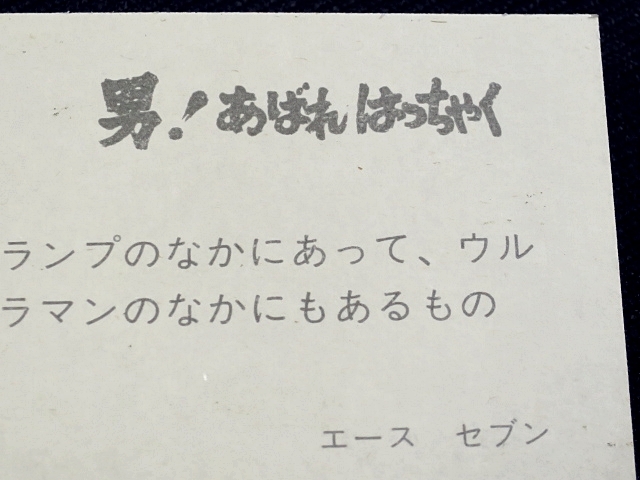 男！あばれはっちゃく
ランプのなかにあって、ウル
ラマンのなかにもあるもの
エース　セブン